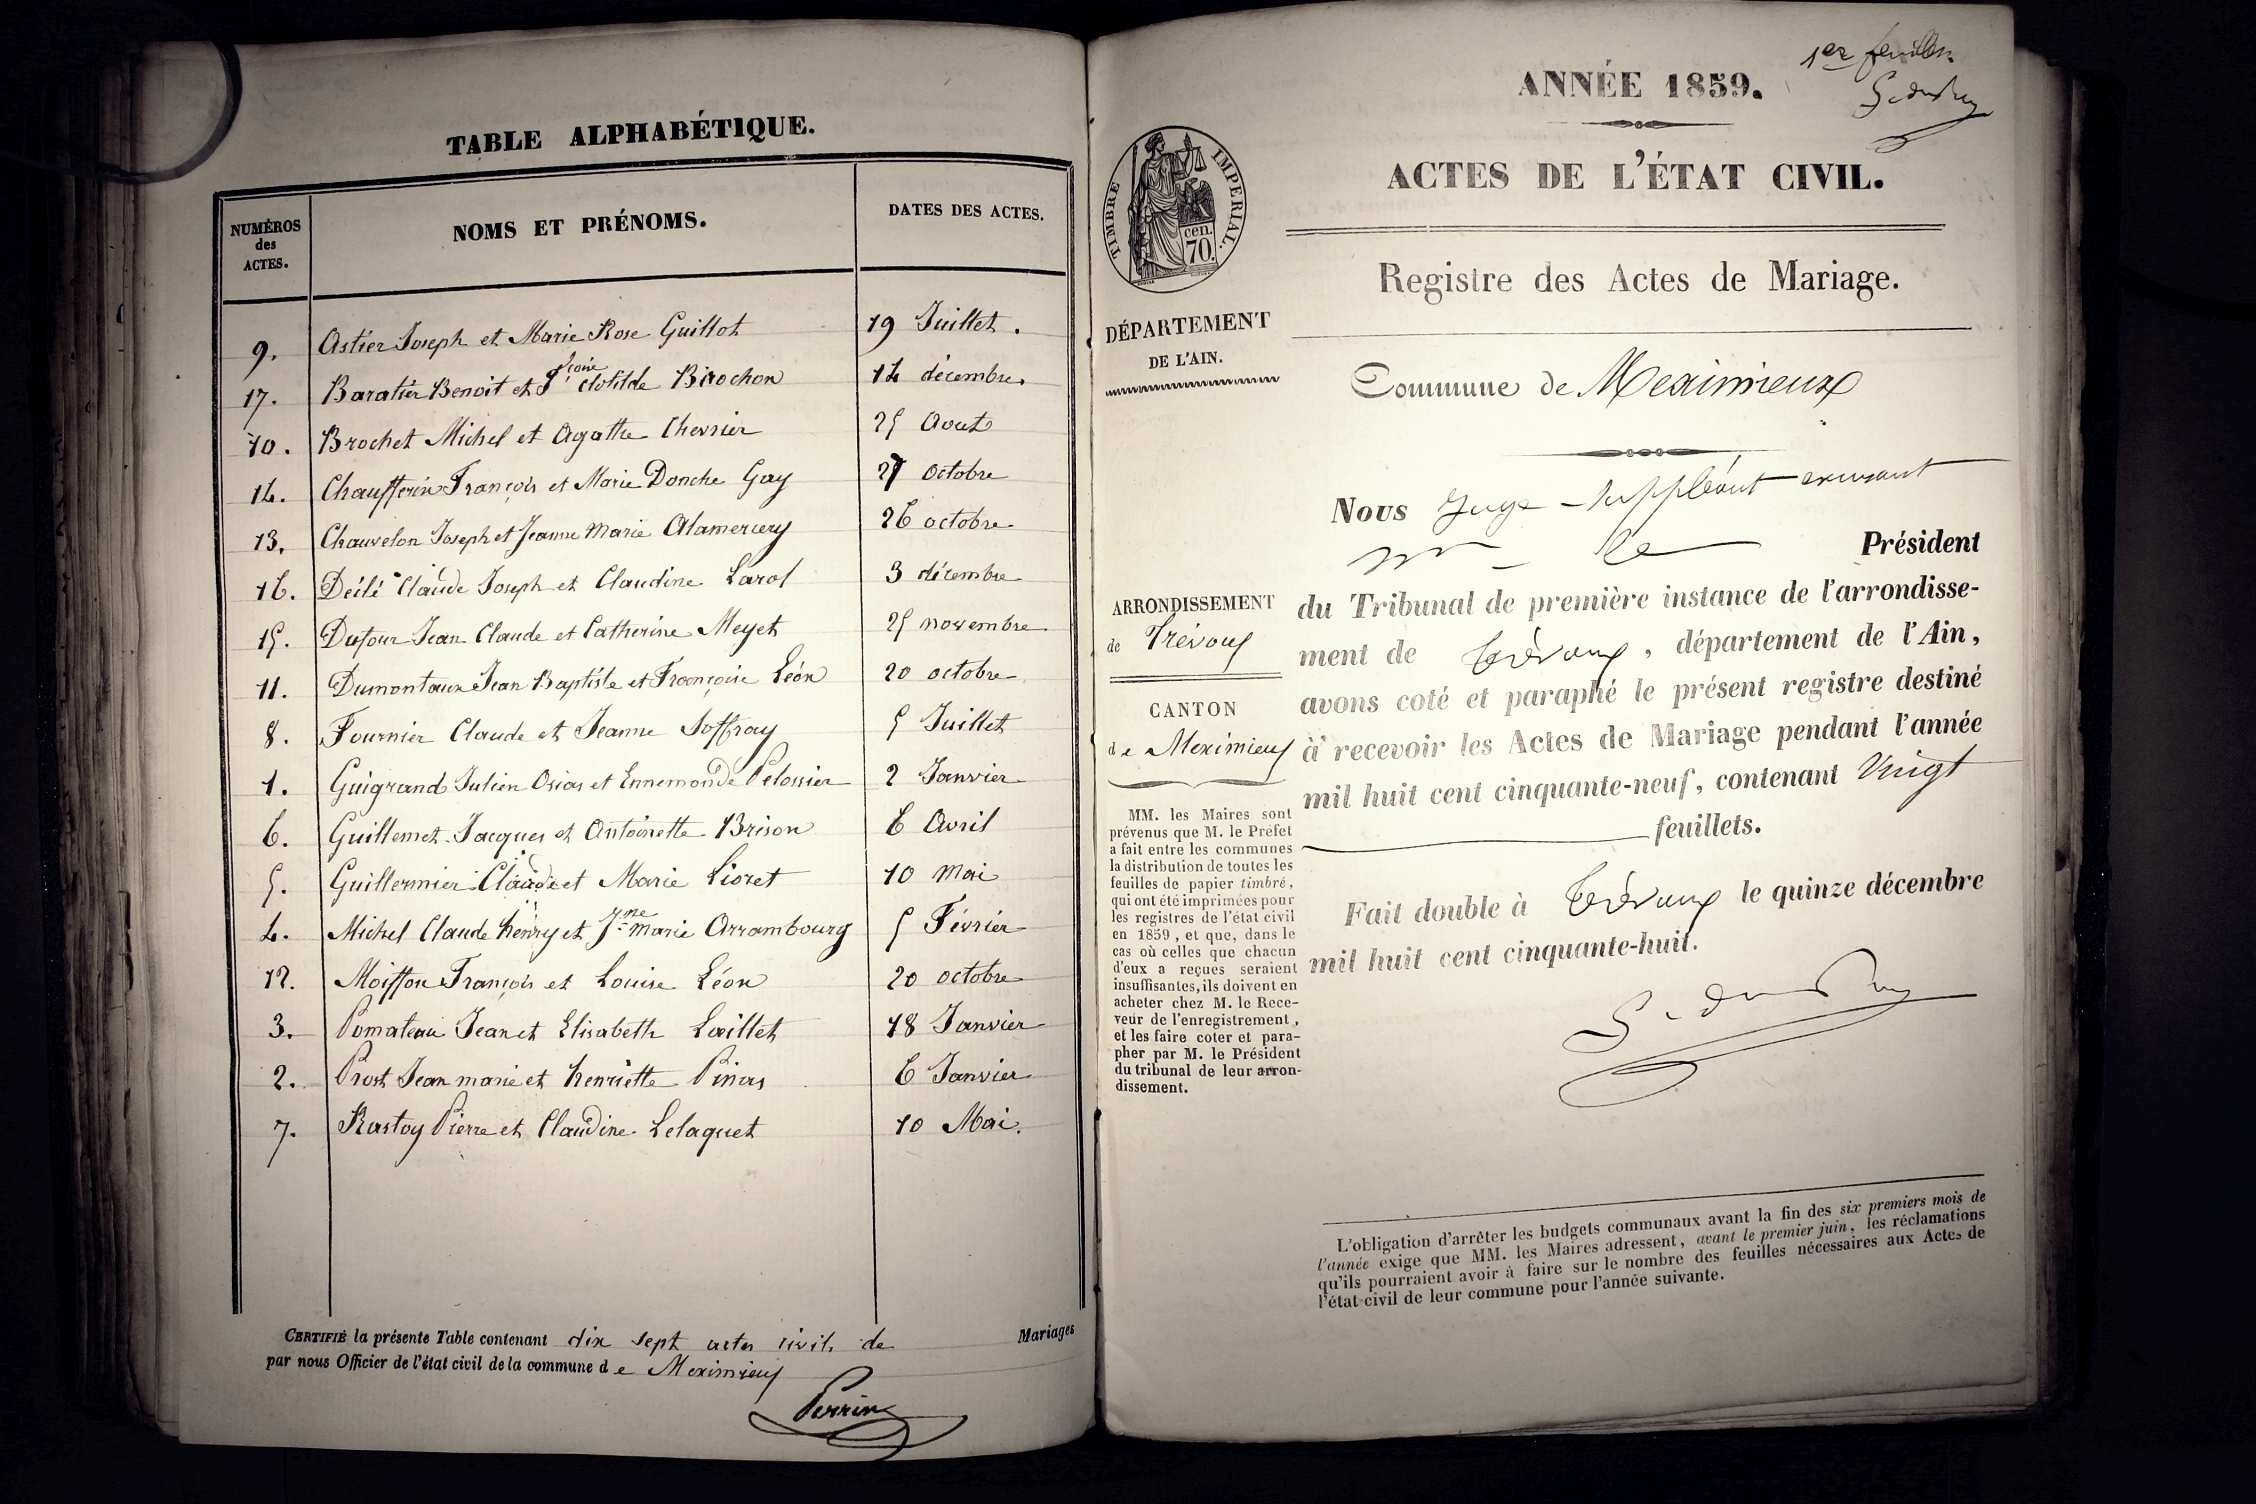 TABLE ALPHABÉTIQUE.
NUMÉROS des ACTES.
NOMS ET PRÉNOMS.
DATES DES ACTES.
9. Astier Joseph et Marie Rose Guillot 19 Juillet.
17. Baratier Benoit et fçoise Clotilde Birochon 14 décembre.
10. Brochet Michel et Agathe Chevrier 25 Aout
14. Chaufferin François et Marie Donche Gay 27 octobre
13. Chauvelon Joseph et Jeanne Marie Alamercery 26 octobre
16. Déilé Claude Joseph et Claudine Larol 3 décembre
15. Dufour Jean Claude et Catherine Meyet 25 novembre
11. Dumontaux Jean Baptiste et Françoise Léon 20 octobre
8. Fournier Claude et Jeanne Joffray 5 Juillet
1. Guigrand Julien Osias et Ennemonde Pelossier 2 Janvier
6. Guillemet Jacques et Antoinette Brison 6 Avril
5. Guillermier Claude et Marie Lioret 10 Mai
4. Michel Claude henry et Jne marie Arrambourg 5 Février
12. Moiffon François et Louise Léon 20 octobre
3. Pomateau Jean et Elisabeth Laillet 18 Janvier
2. Prost Jean marie et henriette Pinas 6 Janvier
7. Rastoy Pierre et Claudine Lelaquet 10 Mai.
CERTIFIÉ la présente Table contenant dix sept actes civils de Mariages
par nous Officier de l'état civil de la commune de Meximieux
Perrin
1er feuillet.
ANNÉE 1859.
ACTES DE L'ÉTAT CIVIL.
TIMBRE IMPERIAL.
cen.
70.
Registre des Actes de Mariage.
DÉPARTEMENT
DE L'AIN.
Commune de Meximieux
ARRONDISSEMENT
de Trévoux
CANTON
de Meximieux
MM. les Maires sont
prévenus que M. le Préfet
a fait entre les communes
la distribution de toutes les
feuilles de papier timbré,
qui ont été imprimées pour
les registres de l'état civil
en 1859, et que, dans le
cas où celles que chacun
d'eux a reçues seraient
insuffisantes, ils doivent en
acheter chez M. le Rece-
veur de l'enregistrement,
et les faire coter et para-
pher par M. le Président
du tribunal de leur arron-
dissement.
Nous Juge-suppléant
le Président
du Tribunal de première instance de l'arrondisse-
ment de trévoux, département de l'Ain,
avons coté et paraphé le présent registre destiné
à recevoir les Actes de Mariage pendant l'année
mil huit cent cinquante-neuf, contenant Vingt
feuillets.
Fait double à trévoux le quinze décembre
mil huit cent cinquante-huit.
L'obligation d'arrêter les budgets communaux avant la fin des six premiers mois de
l'année exige que MM. les Maires adressent, avant le premier juin, les réclamations
qu'ils pourraient avoir à faire sur le nombre des feuilles nécessaires aux Actes de
l'état civil de leur commune pour l'année suivante.